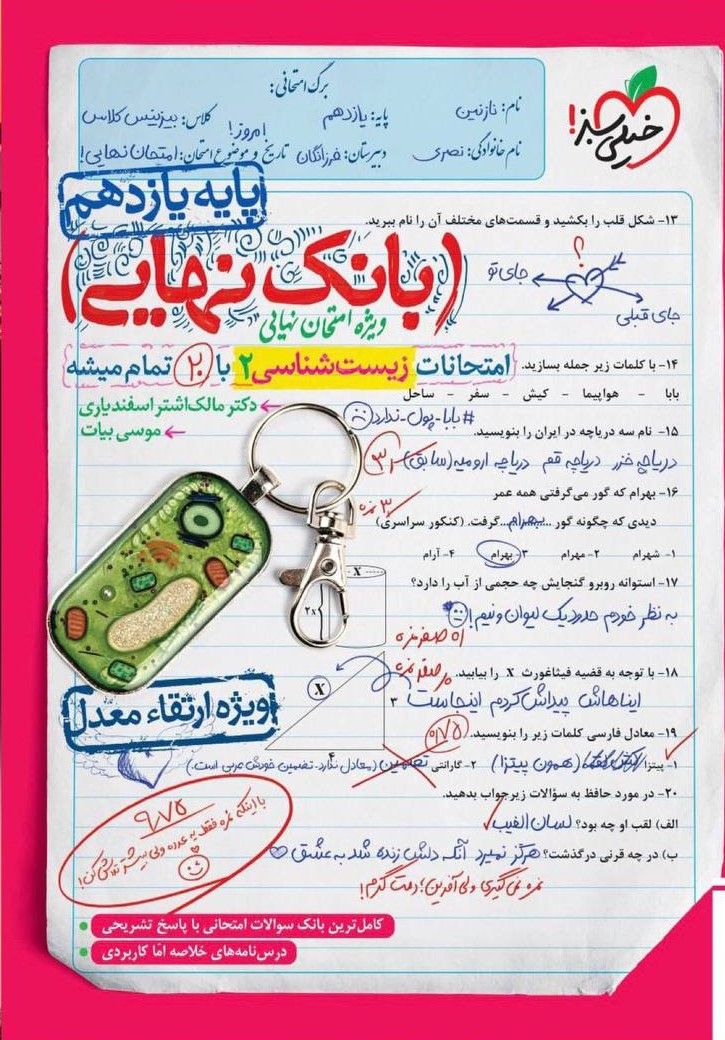 خیلی سبز!
برگ امتحانی:
نام: نازنین
پایه: یازدهم
کلاس: بیزینس کلاس
امروز!
نام خانوادگی: نصری
دبیرستان: فرزانگان
تاریخ و موضوع امتحان: امتحان نهایی!
پایه یازدهم
۱۳- شکل قلب را بکشید و قسمت‌های مختلف آن را نام ببرید.
(بانک نهایی)
؟
جای تو
جای قبلی
ویژه امتحان نهایی
امتحانات زیست‌شناسی ۲ با ۲۰ تمام میشه
۱۴- با کلمات زیر جمله بسازید.
بابا - هواپیما - کیش - سفر - ساحل
#بابا_پول_ندارد
دکتر مالک‌اشتر اسفندیاری
موسی بیات
۱۵- نام سه دریاچه در ایران را بنویسید.
دریاچه خزر دریاچه قم دریاچه ارومیه (سابق)
۱۶- بهرام که گور می‌گرفتی همه عمر
۳ نمره
دیدی که چگونه گور ...بهرام... گرفت. (کنکور سراسری)
۱- شهرام ۲- مهرام ۳- بهرام ۴- آرام
۱۷- استوانه روبرو گنجایش چه حجمی از آب را دارد؟
X
2x
به نظر خودم حدود یک لیوان و نیم!
اه صفر نمره
۱۸- با توجه به قضیه فیثاغورث X را بیابید.
صفر نمره
X
۳
۴
ایناهاش پیداش کردم اینجاست
ویژه ارتقاء معدل
۱۹- معادل فارسی کلمات زیر را بنویسید.
۰/۷۵
۱- پیتزا (همون پیتزا) ۲- گارانتی تضمین (معادل ندارد. تضمین خودش عربی است.)
۲۰- در مورد حافظ به سؤالات زیر جواب بدهید.
الف) لقب او چه بود؟ لسان الغیب
ب) در چه قرنی درگذشت؟ هرگز نمیرد آنکه دلش زنده شد به عشق
نمره نمی‌گیری ولی آفرین! دمت گرم!
۹/۷۵
با اینکه نمره فقط یه عدده ولی بیشتر تلاش کن!
کامل‌ترین بانک سوالات امتحانی با پاسخ تشریحی
درس‌نامه‌های خلاصه اما کاربردی